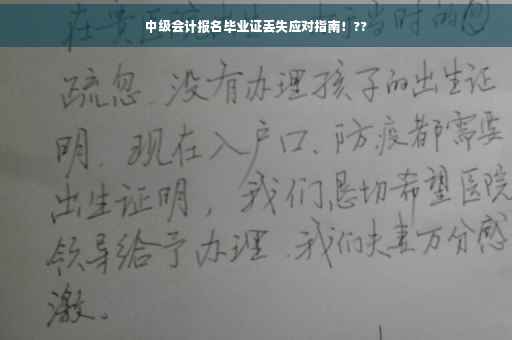 中级会计报名毕业证丢失应对指南！??
疏忽、没有办理孩子的出生证
明、现在入户口、防疫都需要
出生证明，我们恳切希望医院
领导给予办理、我们夫妻万分感
激。